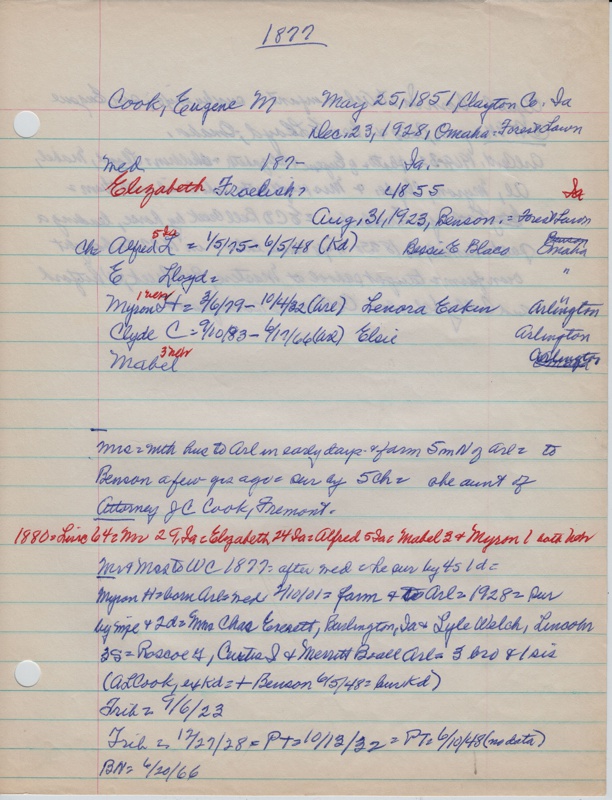 1877
Cook, Eugene M May 25, 1851, Clayton Co. Ia
Dec. 23, 1928, Omaha = Forest Lawn
Med 187- Ia.
Elizabeth Froelish? c1855 Ia
Aug, 31, 1923, Benson. = Forest Lawn
5 Ia
Ch= Alfred L = 1/5/75 - 6/5/48 (Kd) Bessie E Blaco Omaha
E Lloyd = "
1 nebr
Myron H = 3/6/79 - 10/4/32 (Arl) Lenora Eakin Arlington
Clyde C = 9/10/83 - 6/17/66 (Ar) Elsie Arlington
3 nebr
Mabel Arlington
Mrs = mth hus to Arl in early days & farm 5 m N of Arl = to
Benson a few yrs ago = sur by 5 ch = she aunt of
Attorney J C Cook, Fremont.
1880 = Line 64 = Mr 29, Ia = Elizabeth 24 Ia = Alfred 5 Ia = Mabel 3 & Myron 1 both Nebr
Mr & Mrs to WC 1877 = after med = he sur by 4 s 1 d =
Myron H = born Arl = med 2/10/01 = farm & to Arl = 1928 = sur
by wife & 2d = Mrs Chas Everett, Burlington, Ia & Lyle Welch, Lincoln
3S = Roscoe H, Curtis I & Merritt B all Arl = 3 bro & 1 sis
(A L Cook, ex Kd = + Benson 6/5/48 = bur Kd)
Trib = 9/6/23
Trib = 12/27/28 = PT = 10/13/32 = PT = 6/10/48 (no data)
BN = 6/20/66